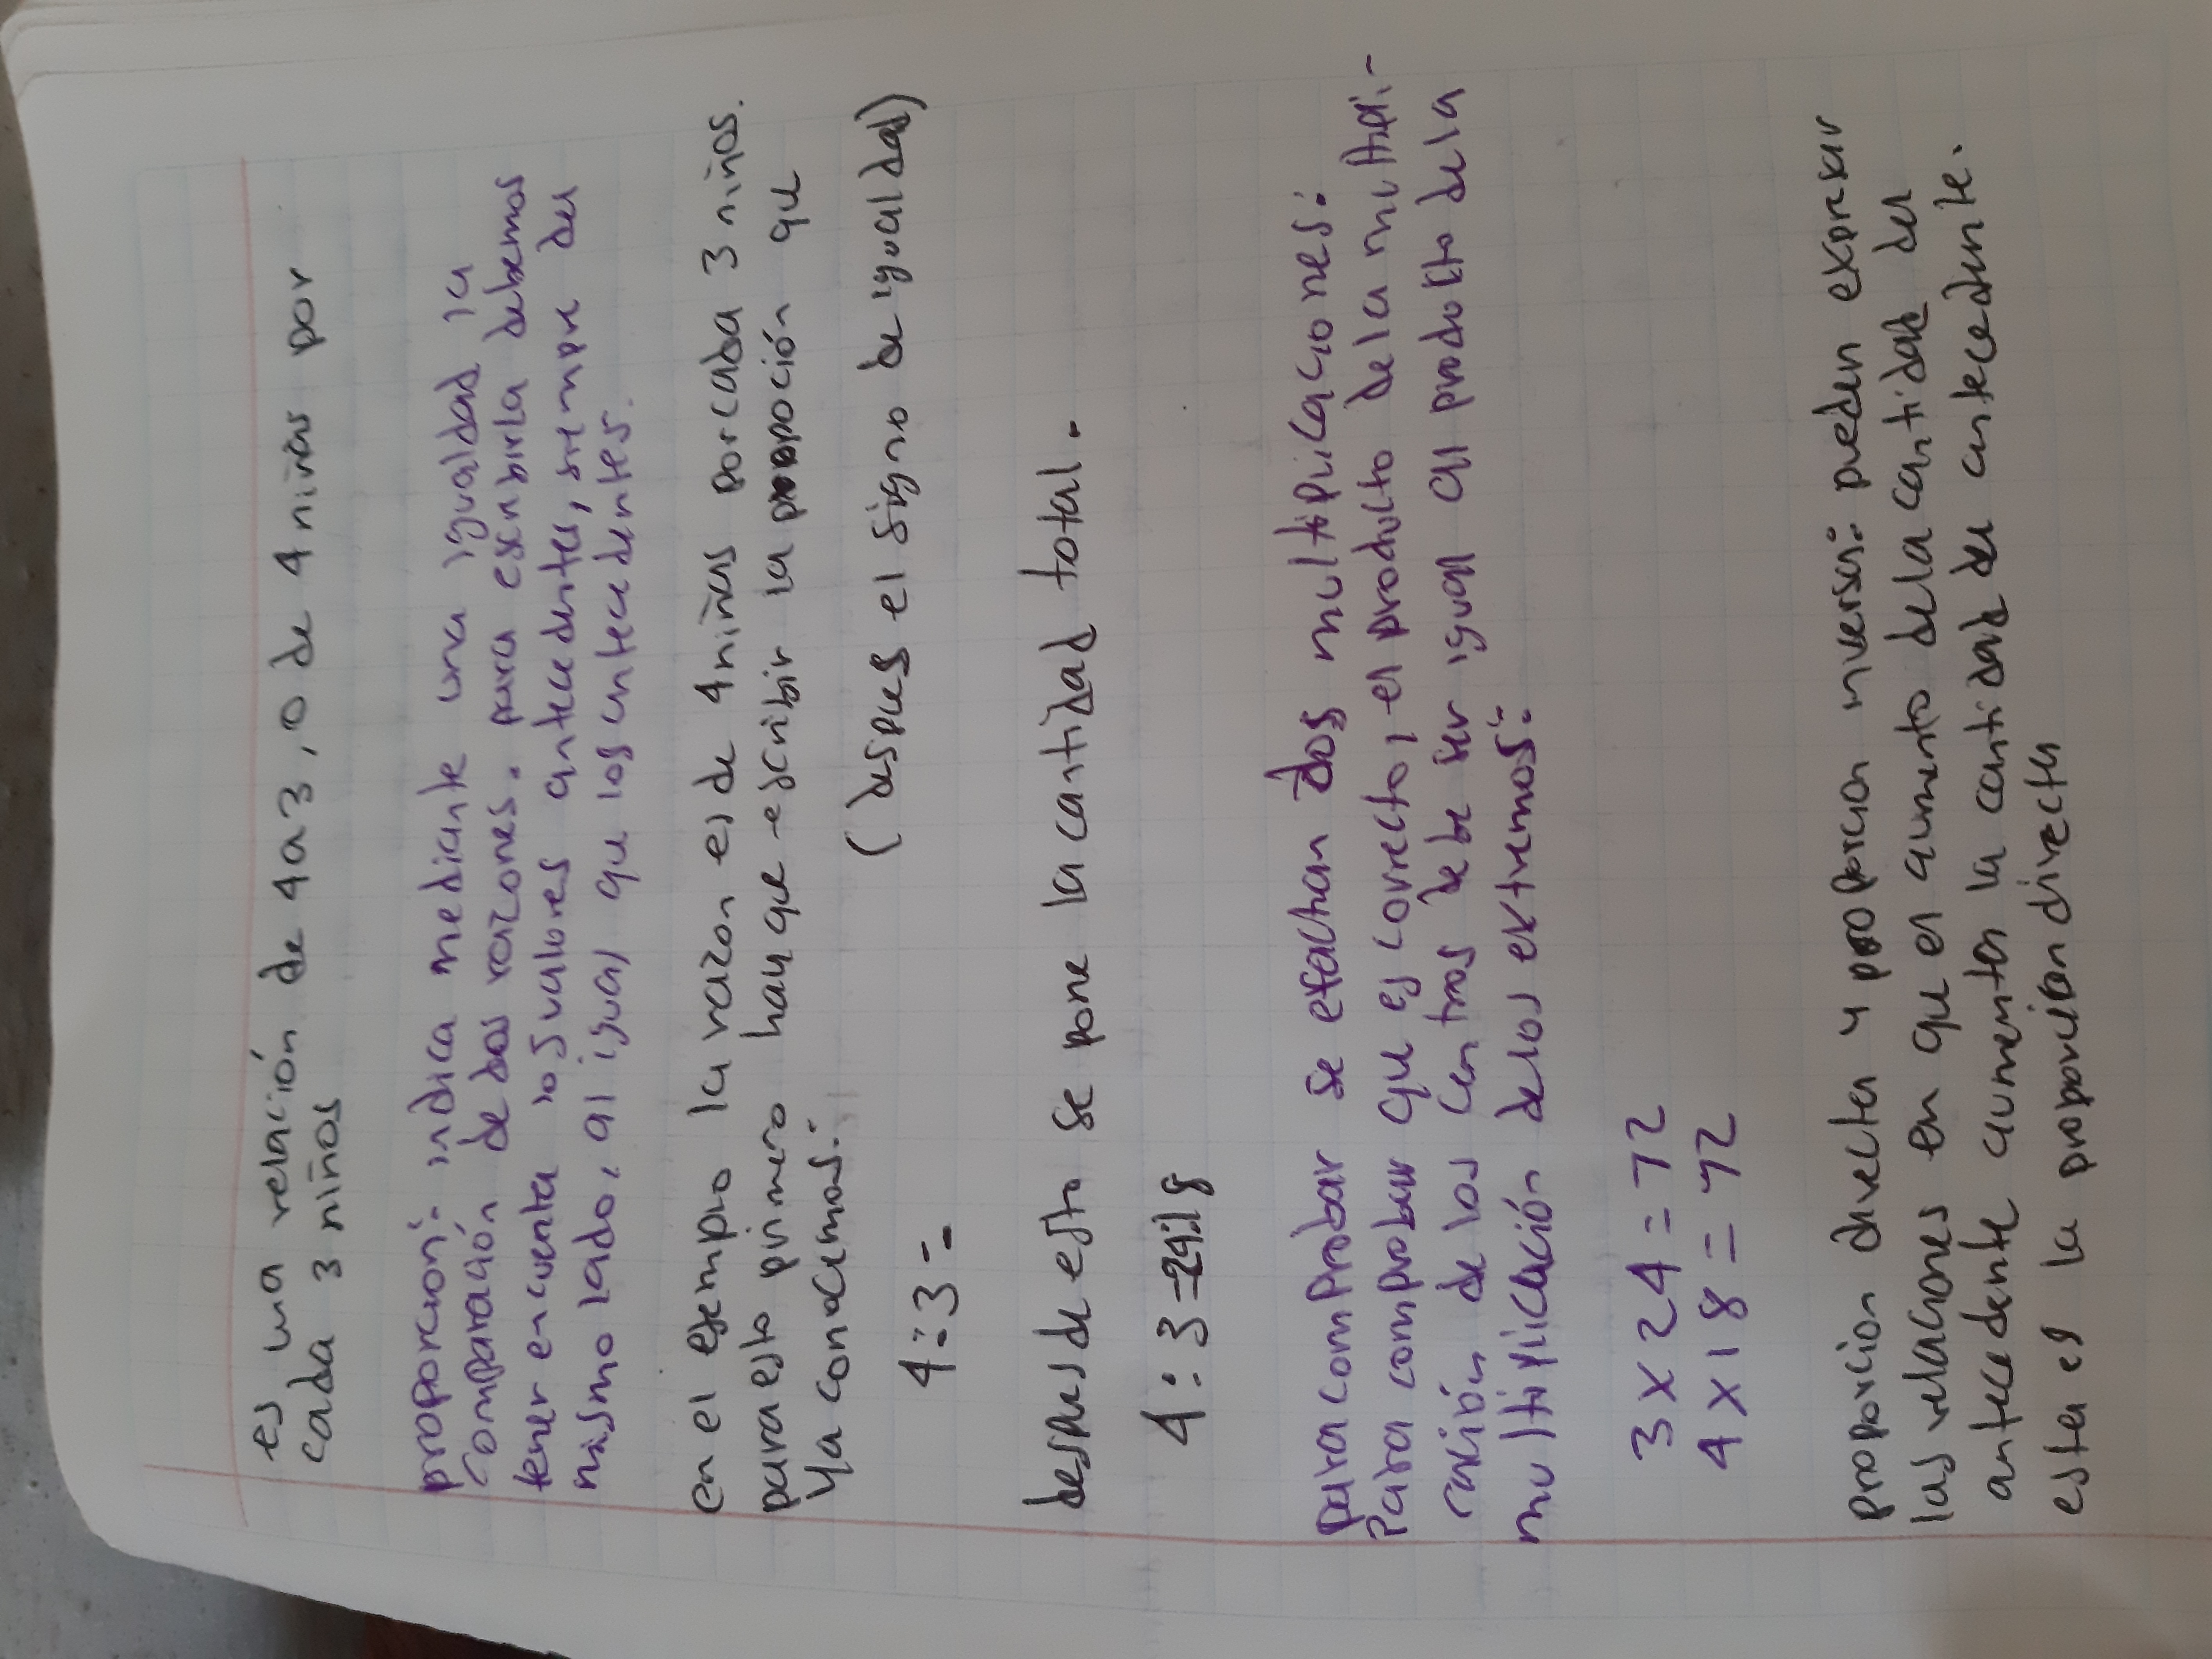 es una relación de 4 a 3, o de 4 niñas por
cada 3 niños
proporción: indica mediante una igualdad la
comparación de dos razones. para escribirla debemos
tener en cuenta los valores antecedentes, siempre del
mismo lado, al igual que los antecedentes.
en el ejemplo la razon es de 4 niñas por cada 3 niños.
para esto primero hay que escribir la propoción que
ya conocemos:
(despues el signo de igualdad)
4:3=
despues de esto se pone la cantidad total.
4:3=24:18
para comprobar se efectuan dos multiplicaciones:
Para comprobar que es correcto, el producto de la multipli-
cación de los centros debe ser igual al producto de la
multiplicación de los extremos:
3 x 24 = 72
4 x 18 = 72
proporcion directa y proporcion inversa: pueden expresar
las relaciones en que el aumento de la cantidad del
antecedente aumenta la cantidad del antecedente.
esta es la proporcion directa